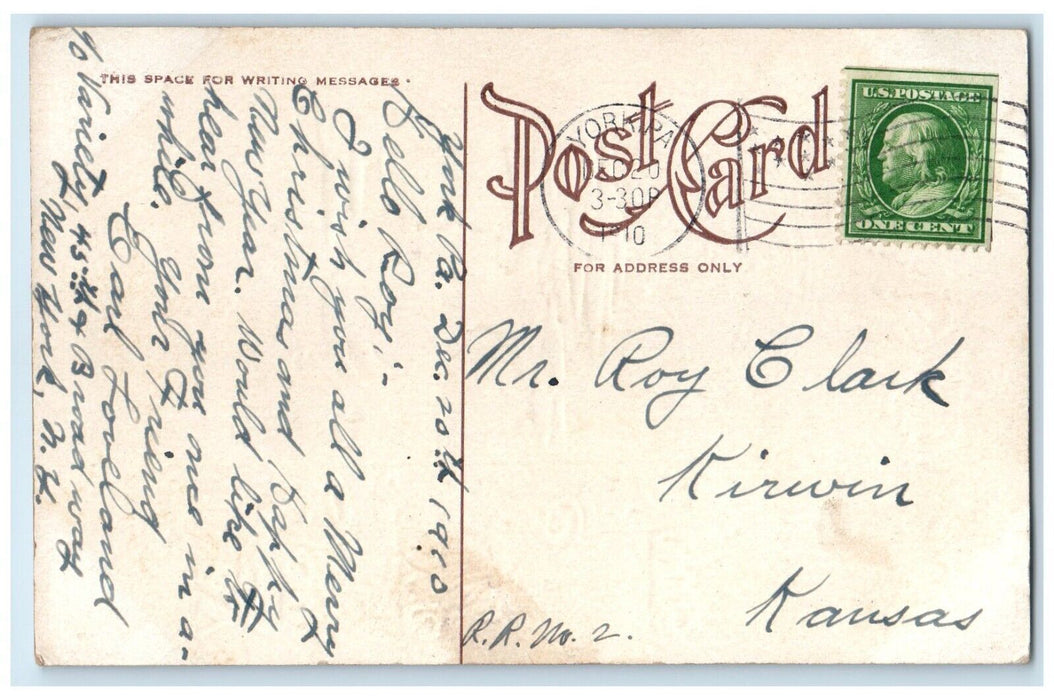 THIS SPACE FOR WRITING MESSAGES
Post Card
FOR ADDRESS ONLY
YORK, PA.
DEC 20
3-30P
1910
U.S. POSTAGE
ONE CENT
York Pa. Dec. 20th 1910
Hello Roy:-
I wish you all a Merry
Christmas and Happy
New Year. Would like to
hear from you once in a-
while. Your friend
Earl Loveland
% Variety, 45th & Broadway
New York, N.Y.
Mr. Roy Clark
Kirwin
Kansas
R.R. No. 2.